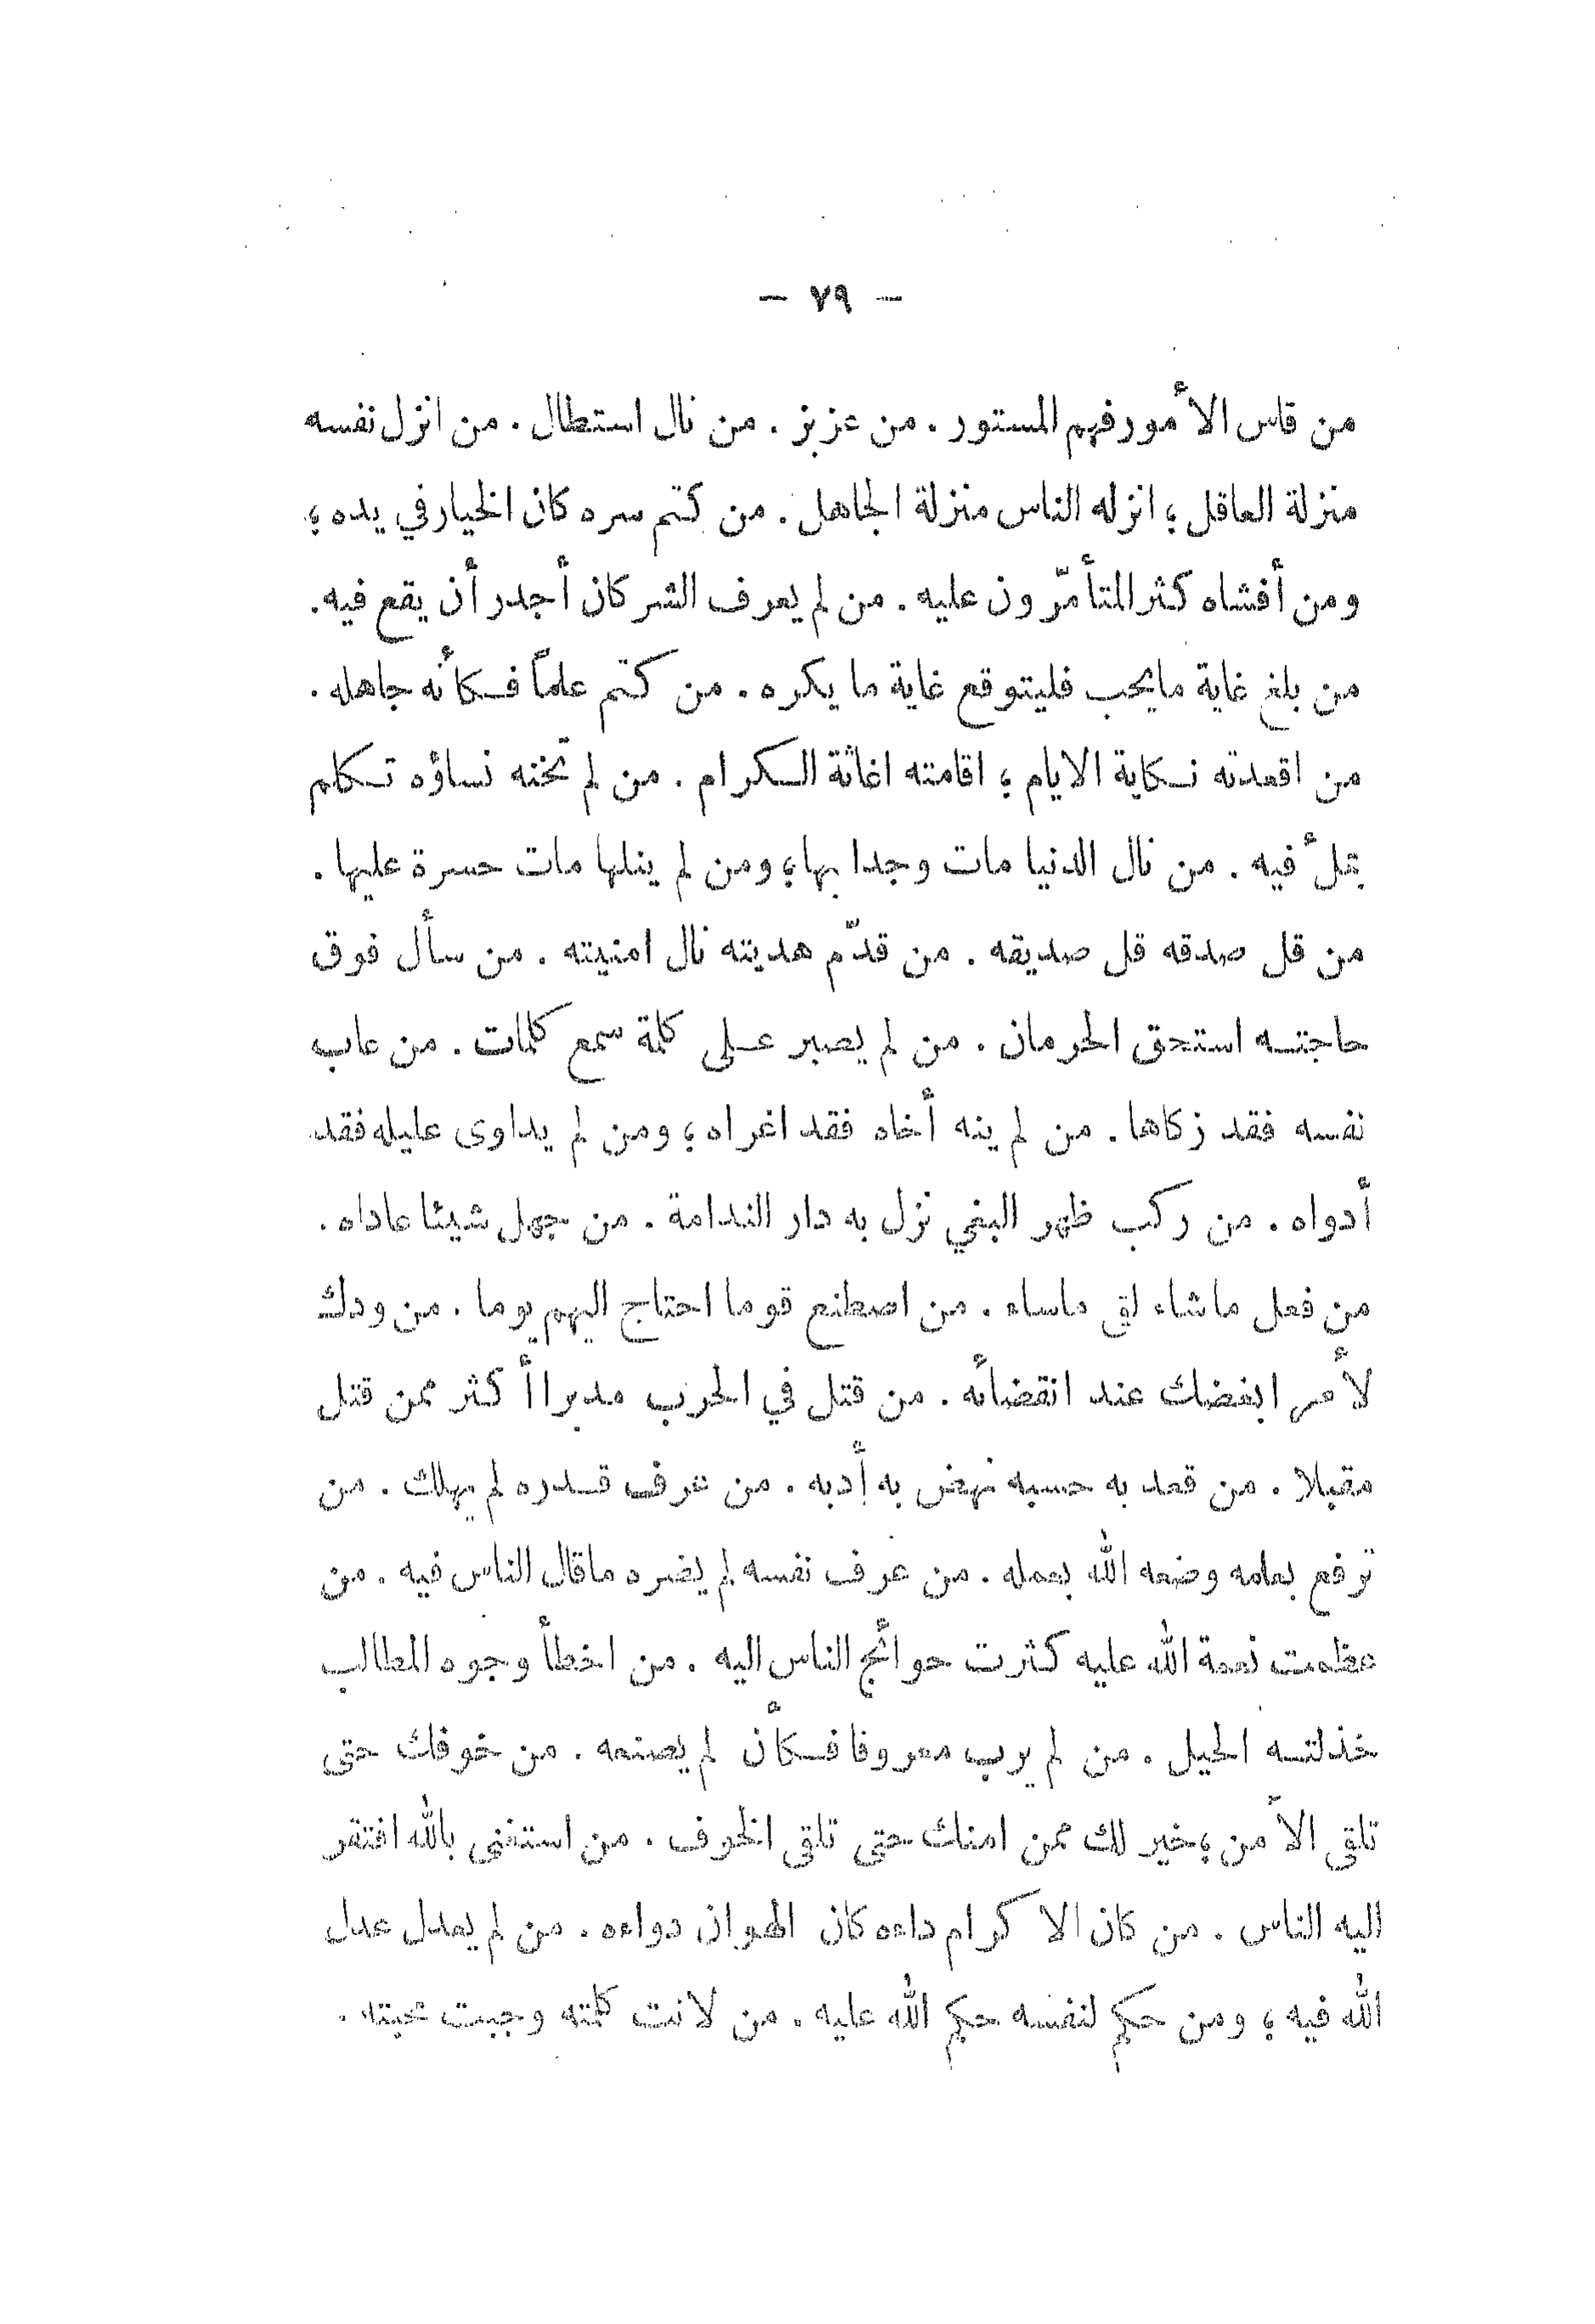 — ٧٩ —
من قاس الأمور فهم المستور . من عز بز . من نال استطال . من انزل نفسه
منزلة العاقل ؛ انزله الناس منزلة الجاهل . من كتم سره كان الخيار في يده ؛
ومن أفشاه كثر المتأمّرون عليه . من لم يعرف الشر كان أجدر أن يقع فيه .
من بلغ غاية مايحب فليتوقع غاية ما يكره . من كتم علماً فكأنه جاهله .
من اقعدته نكاية الايام ؛ اقامته اغاثة الكرام . من لم تخنه نساؤه تكلم
بملْ فيه . من نال الدنيا مات وجدا بها ؛ ومن لم ينلها مات حسرة عليها .
من قل صدقه قل صديقه . من قدّم هديته نال امنيته . من سأل فوق
حاجته استحق الحرمان . من لم يصبر على كلمة سمع كلمات . من عاب
نفسه فقد زكاها . من لم ينه أخاه فقد اغراه ؛ ومن لم يداوى عليله فقد
أدواه . من ركب ظهر البغي نزل به دار الندامة . من جهل شيئا عاداه .
من فعل ماشاء لقي ماساء . من اصطنع قوما احتاج اليهم يوما . من ودك
لأمر ابغضك عند انقضائه . من قتل في الحرب مدبرا أكثر ممن قتل
مقبلا . من قعد به حسبه نهض به أدبه . من عرف قدره لم يهلك . من
ترفع بعلمه وضعه الله بعمله . من عرف نفسه لم يضره ماقال الناس فيه . من
عظمت نعمة الله عليه كثرت حوائج الناس اليه . من اخطأ وجوه المطالب
خذلته الحيل . من لم يرب معروفا فكأن لم يصنعه . من خوفك حتى
تلقى الأمن ؛ خير لك ممن امنك حتى تلقى الخوف . من استغنى بالله افتقر
اليه الناس . من كان الاكرام داءه كان الهوان دواءه . من لم يعدل عدل
الله فيه ؛ ومن حكم لنفسه حكم الله عليه . من لانت كلمته وجبت محبته .